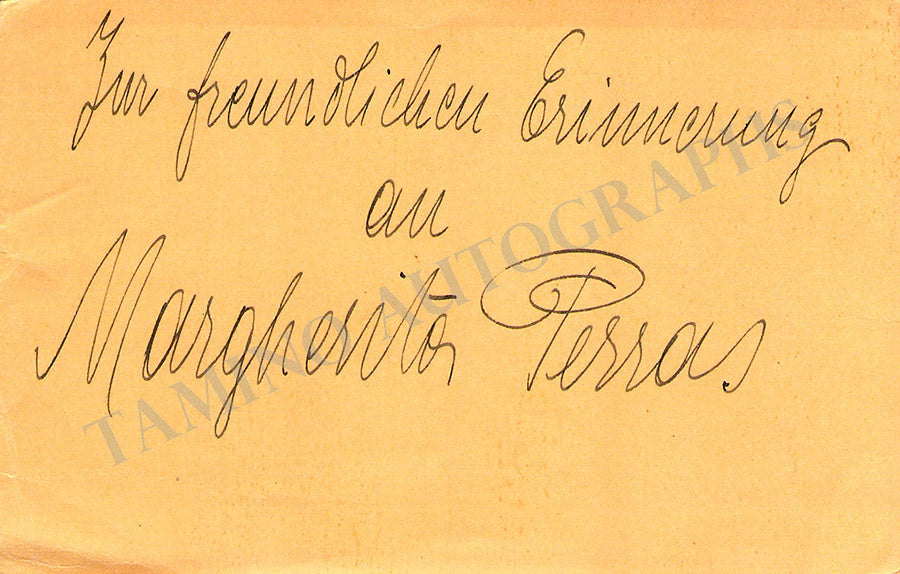 Zur freundlichen Erinnerung
an
Margherita Perras
TAMINO AUTOGRAPHS